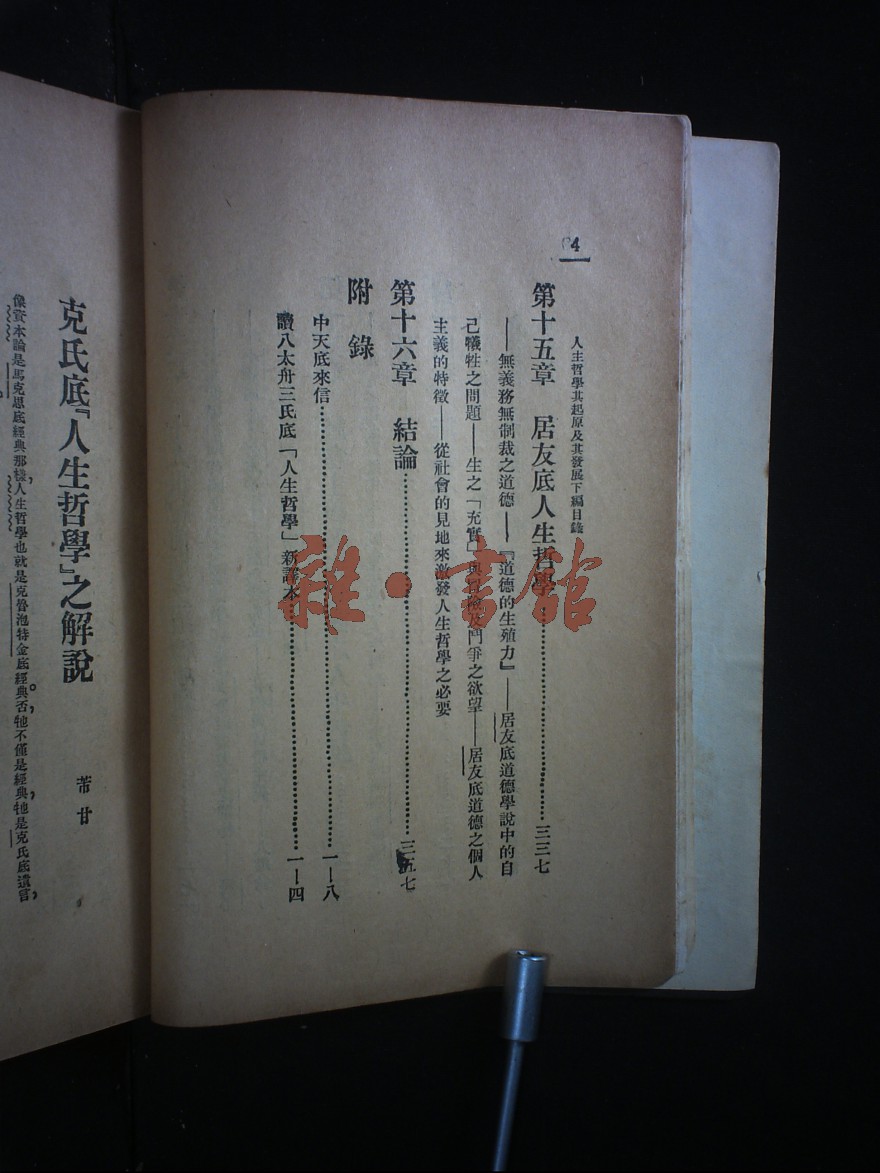 4
人生哲學其起原及其發展下編目錄
第十五章 居友底人生哲學…………三三七
——無義務無制裁之道德——『道德的生殖力』——居友底道德學說中的自
己犧牲之問題——生之「充實」與冒險及鬥爭之欲望——居友底道德之個人
主義的特徵——從社會的見地來激發人生哲學之必要
第十六章 結論…………三五七
附錄
中天底來信…………一—八
讀八太舟三氏底「人生哲學」新譯本…………一—四
克氏底『人生哲學』之解說
芾甘
像資本論是馬克思底經典那樣,人生哲學也就是克魯泡特金底經典。否,牠不僅是經典,牠是克氏底遺言,
雜·書館